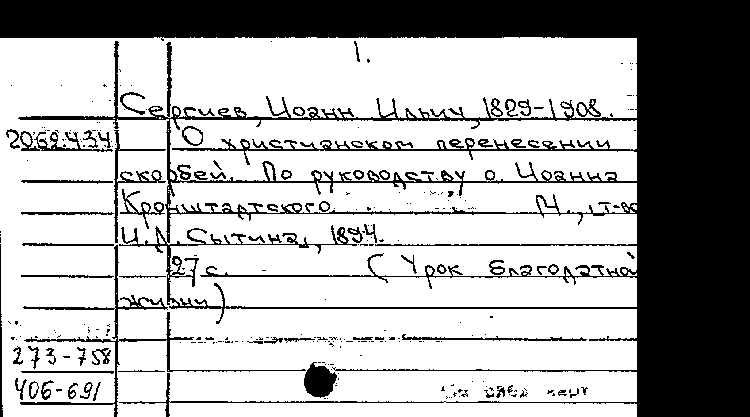 1.
Сергиев, Иоанн Ильич, 1829-1908.
2062.4.34 О христианском перенесении
скорбей. По руководству о. Иоанна
Кронштадтского. М., т-во
И.Д. Сытина, 1894.
27 с. (Урок благодатной
жизни)
273-758
406-691